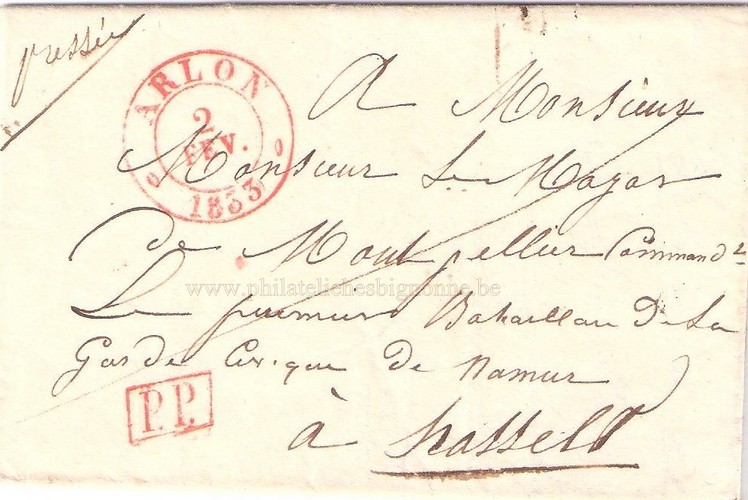 pressée
ARLON
2
FEV.
1833
A Monsieur
Monsieur Le Mayor
De Montpellier Command^r
Le premier Bataillau De La
Garde Civique De Namur
à hasselt
P.P.
www.philatelichesbignonne.be